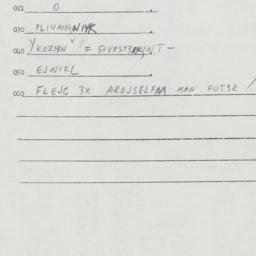 021 O
030 PLIVMAQNIYK
040 YKOZMAN = SIVOST3RK,NT -
050 EJNIKL
060 FLEJG 3X AROJSELFM MAN FUT3R /